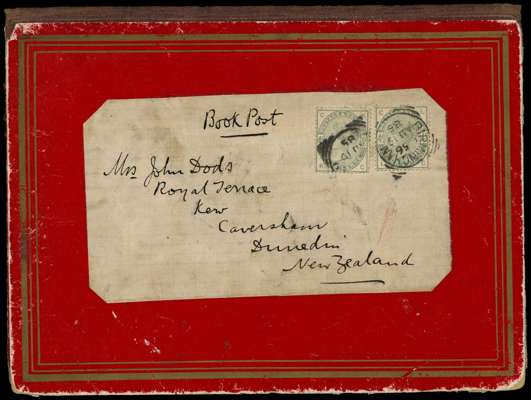 Book Post
Mrs John Dods
Royal Terrace
Kew
Caversham
Dunedin
New Zealand